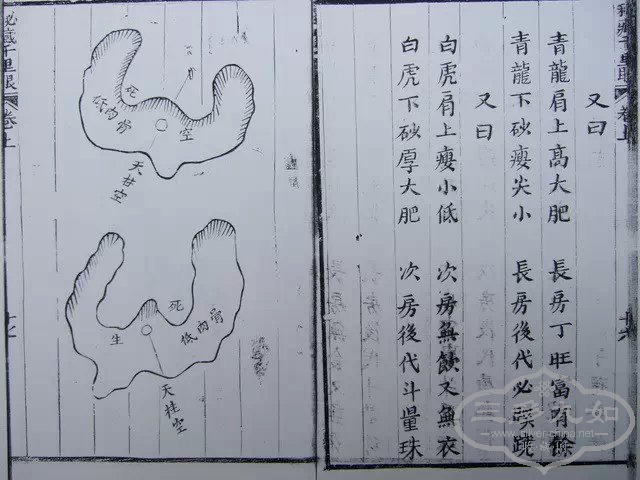 秘藏千里眼
卷上
又曰
青龍肩上高大肥 長房丁旺富有餘
青龍下砂瘦尖小 長房後代必
又曰
白虎肩上瘦小低 次房無飲又無衣
白虎下砂厚大肥 次房後代斗量珠
秘藏千里眼
卷上
死
低肉骨
空
天柱空
死
生
低肉骨
天柱空